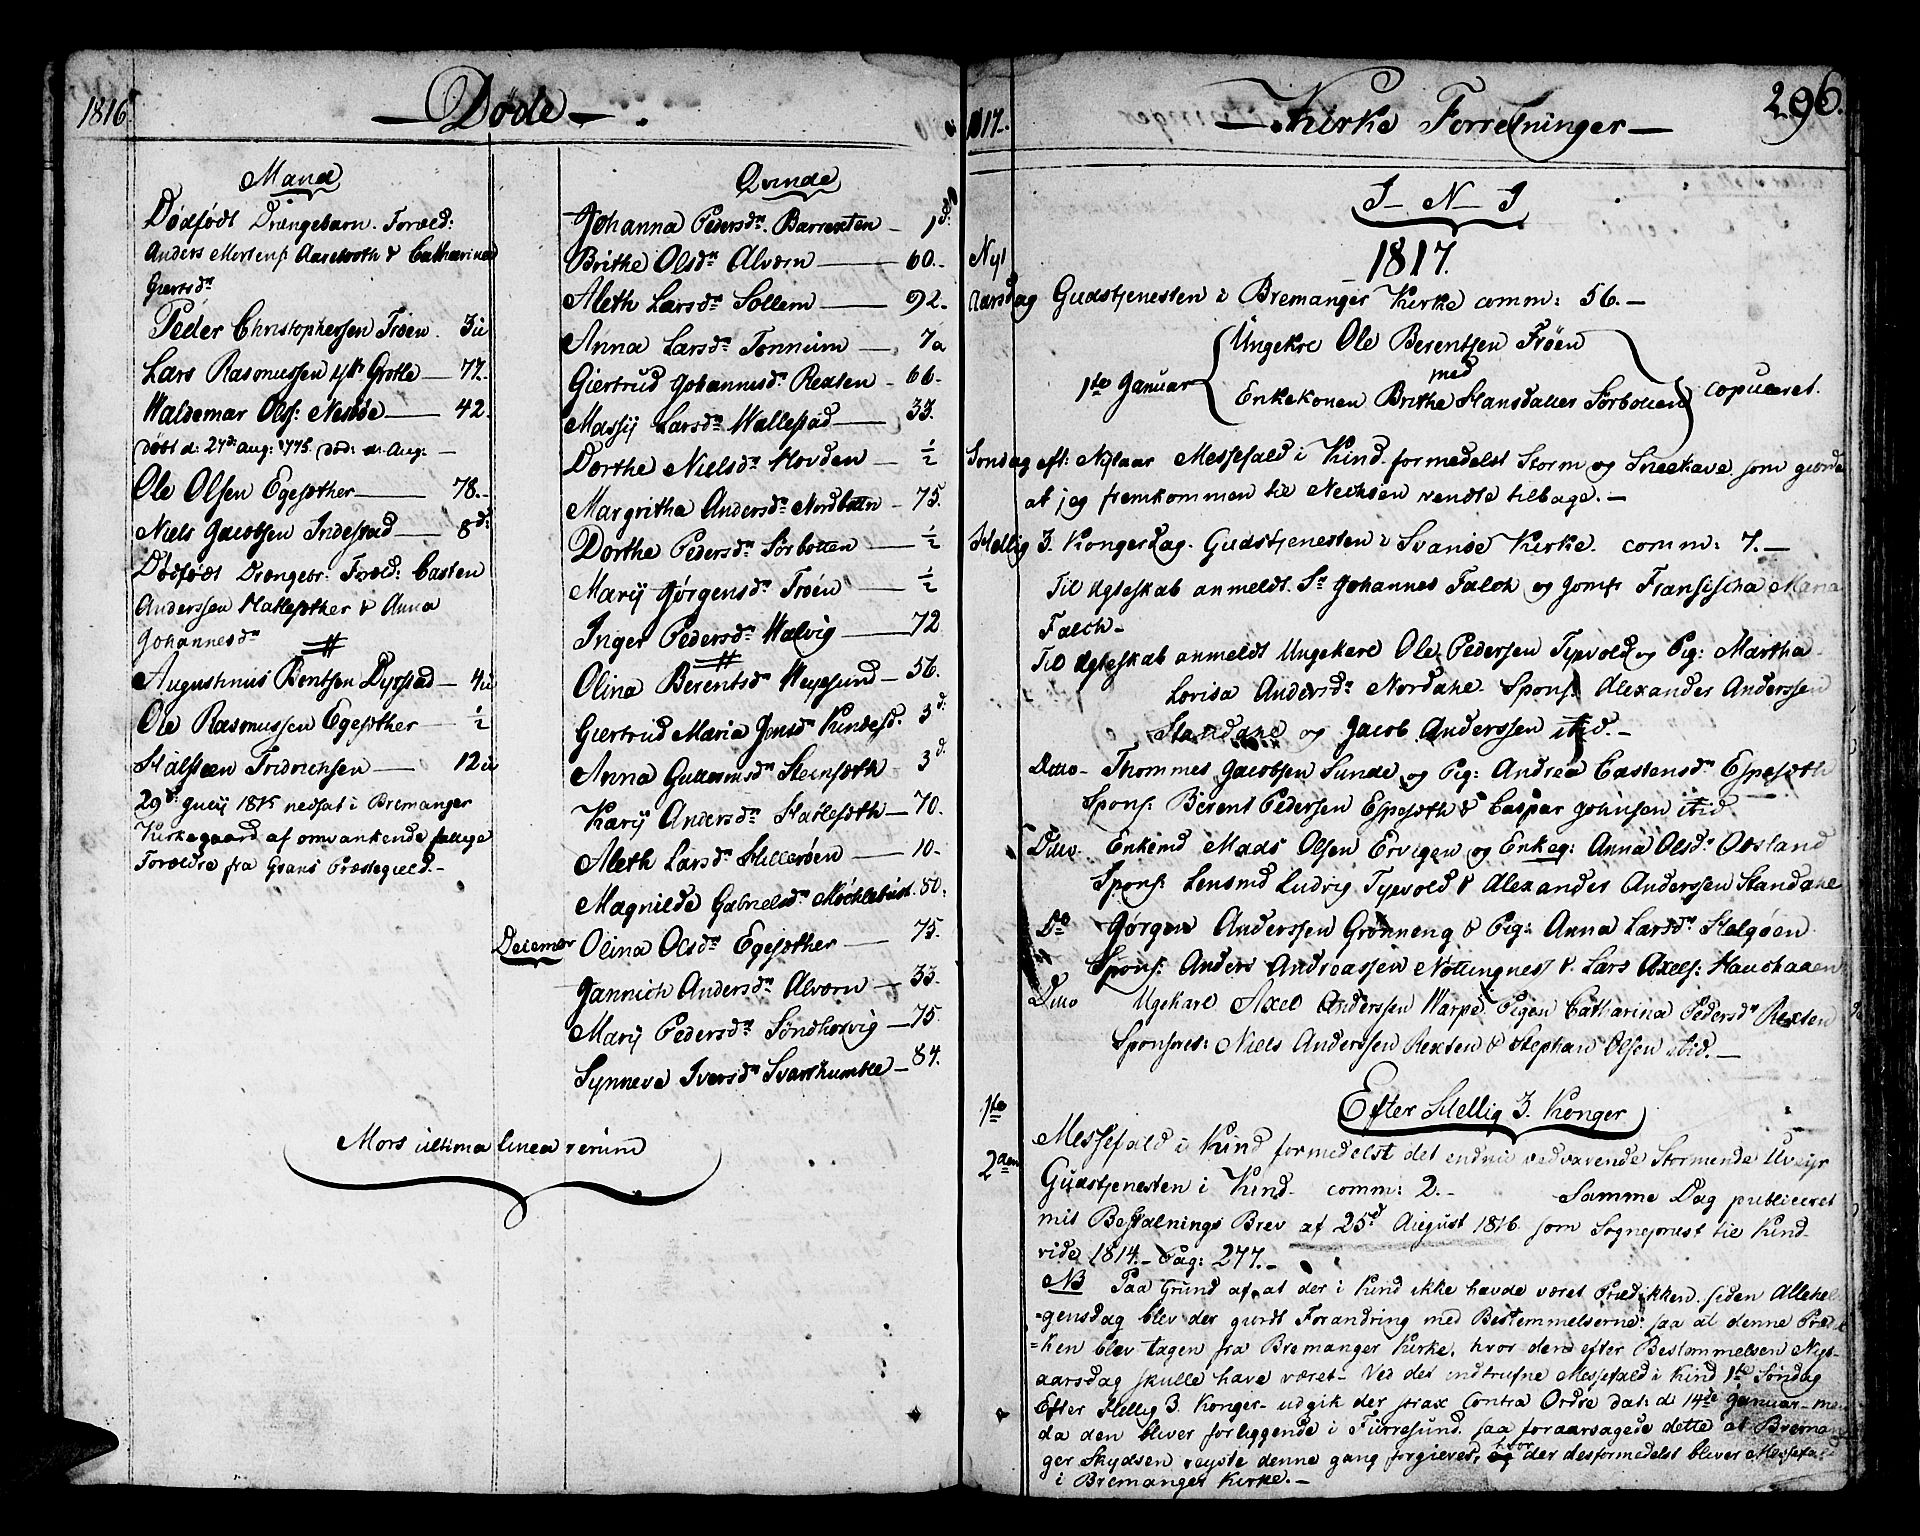 1816.
Døde
Mænd
Dødfødt Drængebarn. Foræld:
Anders Mortens: Aarebroth & Catharina
Giertsdr
Peder Christophersen Frøen. 3 u
Lars Rasmussen yttr Grotle 77.
Waldemar Ols: Nesøe 42.
døbt d: 27d: Aug: 1775. død: d: Aug:
Ole Olsen Egesæther 78.
Niels Jacobsen Indrestad 8 d:
Dødfødt Drængebr: Foræld: Casten
Anderssen Hatlesæther & Anna
Johannesdr
Augustinus Bentsen Dyrstad 4 u
Ole Rasmussen Egesæther ½
Halsteen Fridrichsen 12 u
29d Julij 1815 nedsat i Bremanger
Kirkegaard af omvankende fattige
Forældre fra Grans Præstegield.
Qvinde
Johanna Pedersdr. Barrexten 1 d:
Brithe Olsdr Alvøen 60.
Aleth Larsdr Sollem 92.
Anna Larsdr Tonneim 7 a
Giertrud Johannesdr Rexten 66.
Massij Larsdr Wallestad 33.
Dorthe Nielsdr Hovden ½
Margritha Andersdr Nordbotten 75.
Dorthe Pedersdr Sørbotten ½
Marij Jørgensdr Frøen ½
Inger Pedersdr Walvig 72
Olina Berentsdr Weyesund 56.
Giertrud Maria Jensdr Kindesd. 3 d.
Anna Guttormsdr Steinsæth 3 d.
Karij Andersdr Hatlesæth 70.
Aleth Larsdr Hillerøen 10.
Magnilde Gabrielsdr Mochlebust 50.
Decemer Olina Olsdr Egesæther 75.
Jannich Andersdr Alvøen 33.
Marij Pedersdr Søndhorvig 75.
Synneva Iversdr Svarthumle 84.
Mors ultima linea rerum
1817.
Kirke Forretninger
296.
I N J
1817.
Nyt
aarsdag Gudstjenesten i Bremanger Kirke comm: 56.
1te Januar Ungekrl Ole Berentsen Frøen
med
Enkekonen Brithe Hansdatter Sørbotten copuleret.
Søndag eft: Nytaar Messefald i Kind formedelst Storm og Sneekave, som giorde
at jeg fremkommen til Nechsen vendte tilbage.
Hellig 3. Kongerdag. Gudstjenesten i Svanøe Kirke. comm: 7.
Til Ægteskab anmeldt Sr Johannes Falch og Jomfr Fransischa Maria
Falch
Til Ægteskab anmeldt Ungekarl Ole Pedersen Tyevold og Pig: Martha
Lovisa Andersdr Nordahe. Spons: Alexander Anderssen
Standahe og Jacob Anderssen itid.
Ditto Thommes Jacobsen Sunde og Pig: Andrea Castensdr Espesæth
Spons: Berent Pedersen Espesæth & Caspar Johnsen itid.
Ditto Enkemd Mads Olsen Ervigen og Enkeq: Anna Olsdr Oesland
Spons: Lensmd Ludvig Tyevold & Alexander Anderssen Standahe
Do Jørgen Anderssen Grønneng & Pig: Anna Larsdr Helgøen
Spons: Anders Andreassen Nottingnest & Lars Axels: Hauchaaen
Ditto Ugekarl Axel Anderssen Warpe Pigen Catharina Pedersdr Rexten
Sponsores: Niels Anderssen Rexten & Stephan Olsen itid.
Efter Hellig 3. Konger
1te Messefald i Kind formedelst det endnu vedvarende Stormende Uveyr
2den Gudstjenesten i Kind. comm: 2. Samme Dag publiceret
mit Bestalnings Brev af 25d August 1816. som Sognepræst til Kind
vide 1814. Pag: 277.
NB Paa Grund af, at der i Kind ikke havde været Prædikken siden Allehel
=gensdag blev der giordt Forandring med Bestemmelserne: saa at denne Præd
=ken blev tagen fra Bremanger Kirke, hvor den efter Bestemmelsen Nyt
aarsdag skulle have været. Ved det indtrufne Messefald i Kind 1te Søndag
Efter Hellig 3. Konger udgik der strax Contra Ordre dat: d 14de Januar men
da den bliver forliggende i Furresund, saa foraarsagede dette at Breman
ger Skydsen reyste denne gang forgieves, hvor der desformedelst bliver Messefald
i Bremanger Kirke.